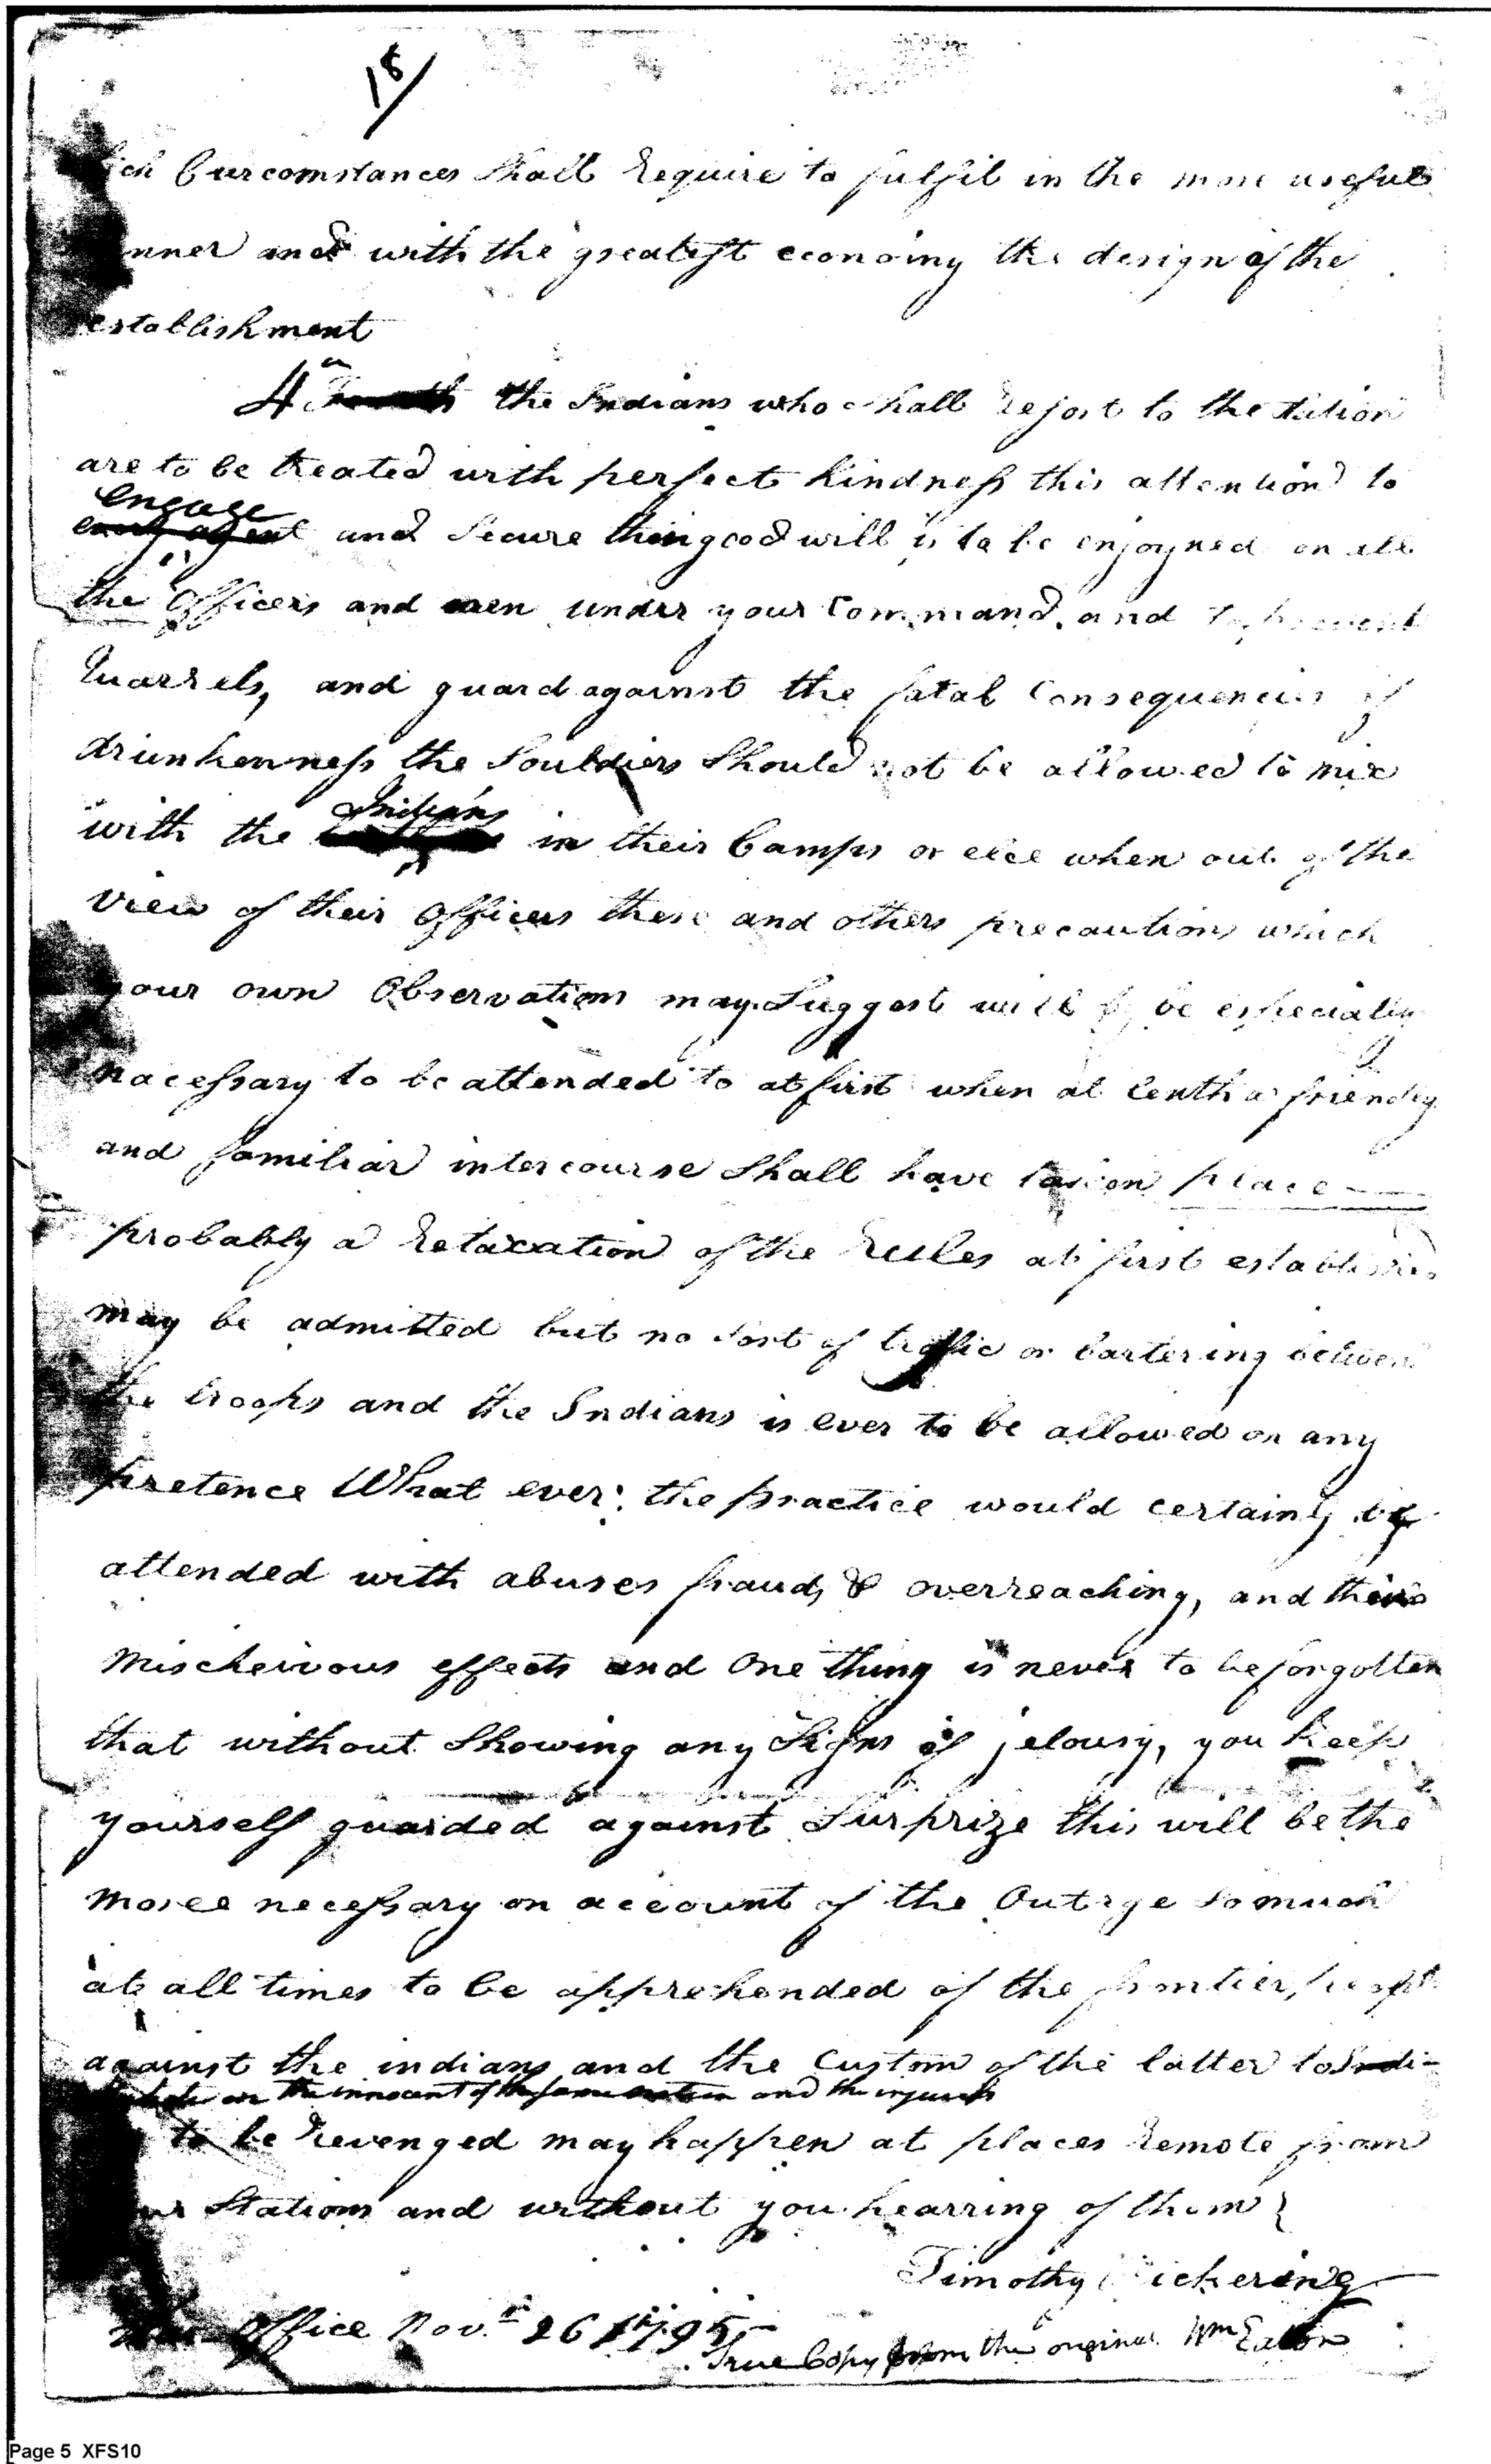 18/
ich Curcomstances Shall Require to fulfil in the more useful
nner and with the greatest economy the design of the
establishment
4th the Indians who shall Resort to the Station
are to be treated with perfect Kindness this attention to
engage
and Secure their good will is to be enjoyned on all
the Officers and men under your Command, and to prevent
Quarrels, and guard against the fatal Consequencies of
drunkenness the Souldiers Should not be allowed to mix
Indians
with the in their Camps or elce when out of the
view of their Officers these and others precautions which
your own Observations may Suggest will be especially
nacessary to be attended to at first when at lenth a friendly
and familiar intercourse Shall have taken place
probably a Relaxation of the Rules at first establis
may be admitted but no Sort of traffic or bartering between
the troops and the Indians is ever to be allowed on any
pretence What ever: the practice would certainly be
attended with abuses frauds & overreaching, and their
Mischeivous effects and One thing is never to be forgotten
that without Showing any Signs of jelousy, you Keep
yourself guarded against Surprize this will be the
moree necessary on account of the Outrge So much
at all times to be apprehended of the frontier,
against the indians and the Custom of the latter to
on the innocent of the same and the injurees
to be Revenged may happen at places Remote from
Stations and without you hearring of them
Timothy Pickering
Office Nov. 26 1795
True Copy from the original Wm Eaton
Page 5 XFS10